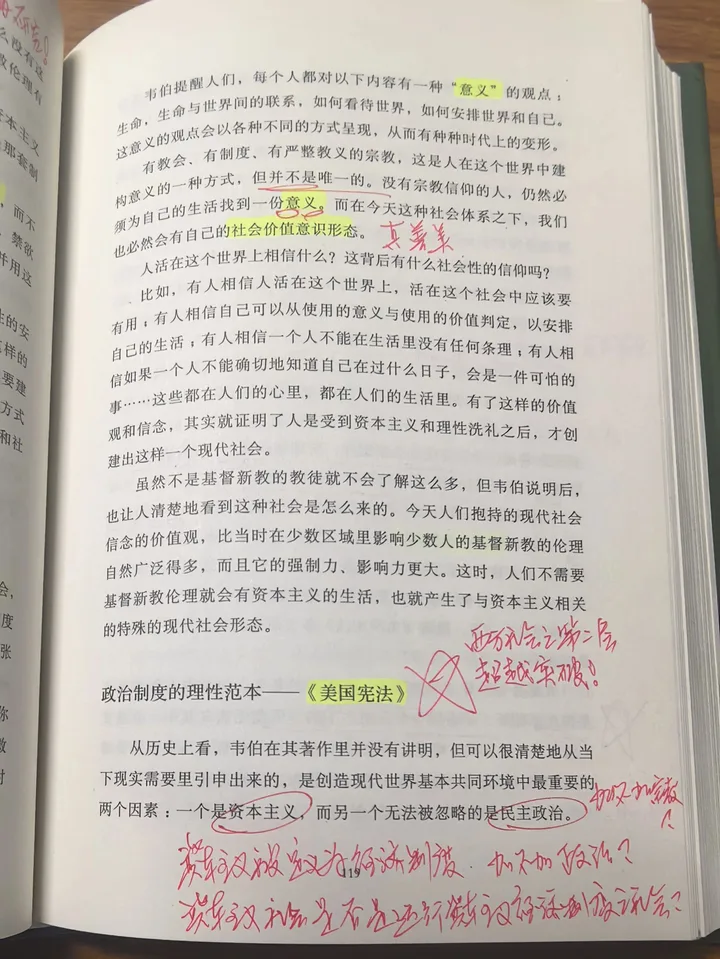 韦伯提醒人们，每个人都对以下内容有一种“意义”的观点：
生命，生命与世界间的联系，如何看待世界，如何安排世界和自己。
这意义的观点会以各种不同的方式呈现，从而有种种时代上的变形。
有教会、有制度、有严整教义的宗教，这是人在这个世界中建
构意义的一种方式，但并不是唯一的。没有宗教信仰的人，仍然必
须为自己的生活找到一份意义。而在今天这种社会体系之下，我们
也必然会有自己的社会价值意识形态。 真善美
人活在这个世界上相信什么？这背后有什么社会性的信仰吗？
比如，有人相信人活在这个世界上，活在这个社会中应该要
有用；有人相信自己可以从使用的意义与使用的价值判定，以安排
自己的生活；有人相信一个人不能在生活里没有任何条理；有人相
信如果一个人不能确切地知道自己在过什么日子，会是一件可怕的
事……这些都在人们的心里，都在人们的生活里。有了这样的价值
观和信念，其实就证明了人是受到资本主义和理性洗礼之后，才创
建出这样一个现代社会。
虽然不是基督新教的教徒就不会了解这么多，但韦伯说明后，
也让人清楚地看到这种社会是怎么来的。今天人们抱持的现代社会
信念的价值观，比当时在少数区域里影响少数人的基督新教的伦理
自然广泛得多，而且它的强制力、影响力更大。这时，人们不需要
基督新教伦理就会有资本主义的生活，也就产生了与资本主义相关
的特殊的现代社会形态。
西方社会之第二层
超越突破！
政治制度的理性范本——《美国宪法》
从历史上看，韦伯在其著作里并没有讲明，但可以很清楚地从当
下现实需要里引申出来的，是创造现代世界基本共同环境中最重要的
两个因素：一个是资本主义，而另一个无法被忽略的是民主政治。
加不加宗教？
资本主义被定义为经济制度 加不加政治？
119
资本主义社会是否是运行资本主义经济制度之社会？